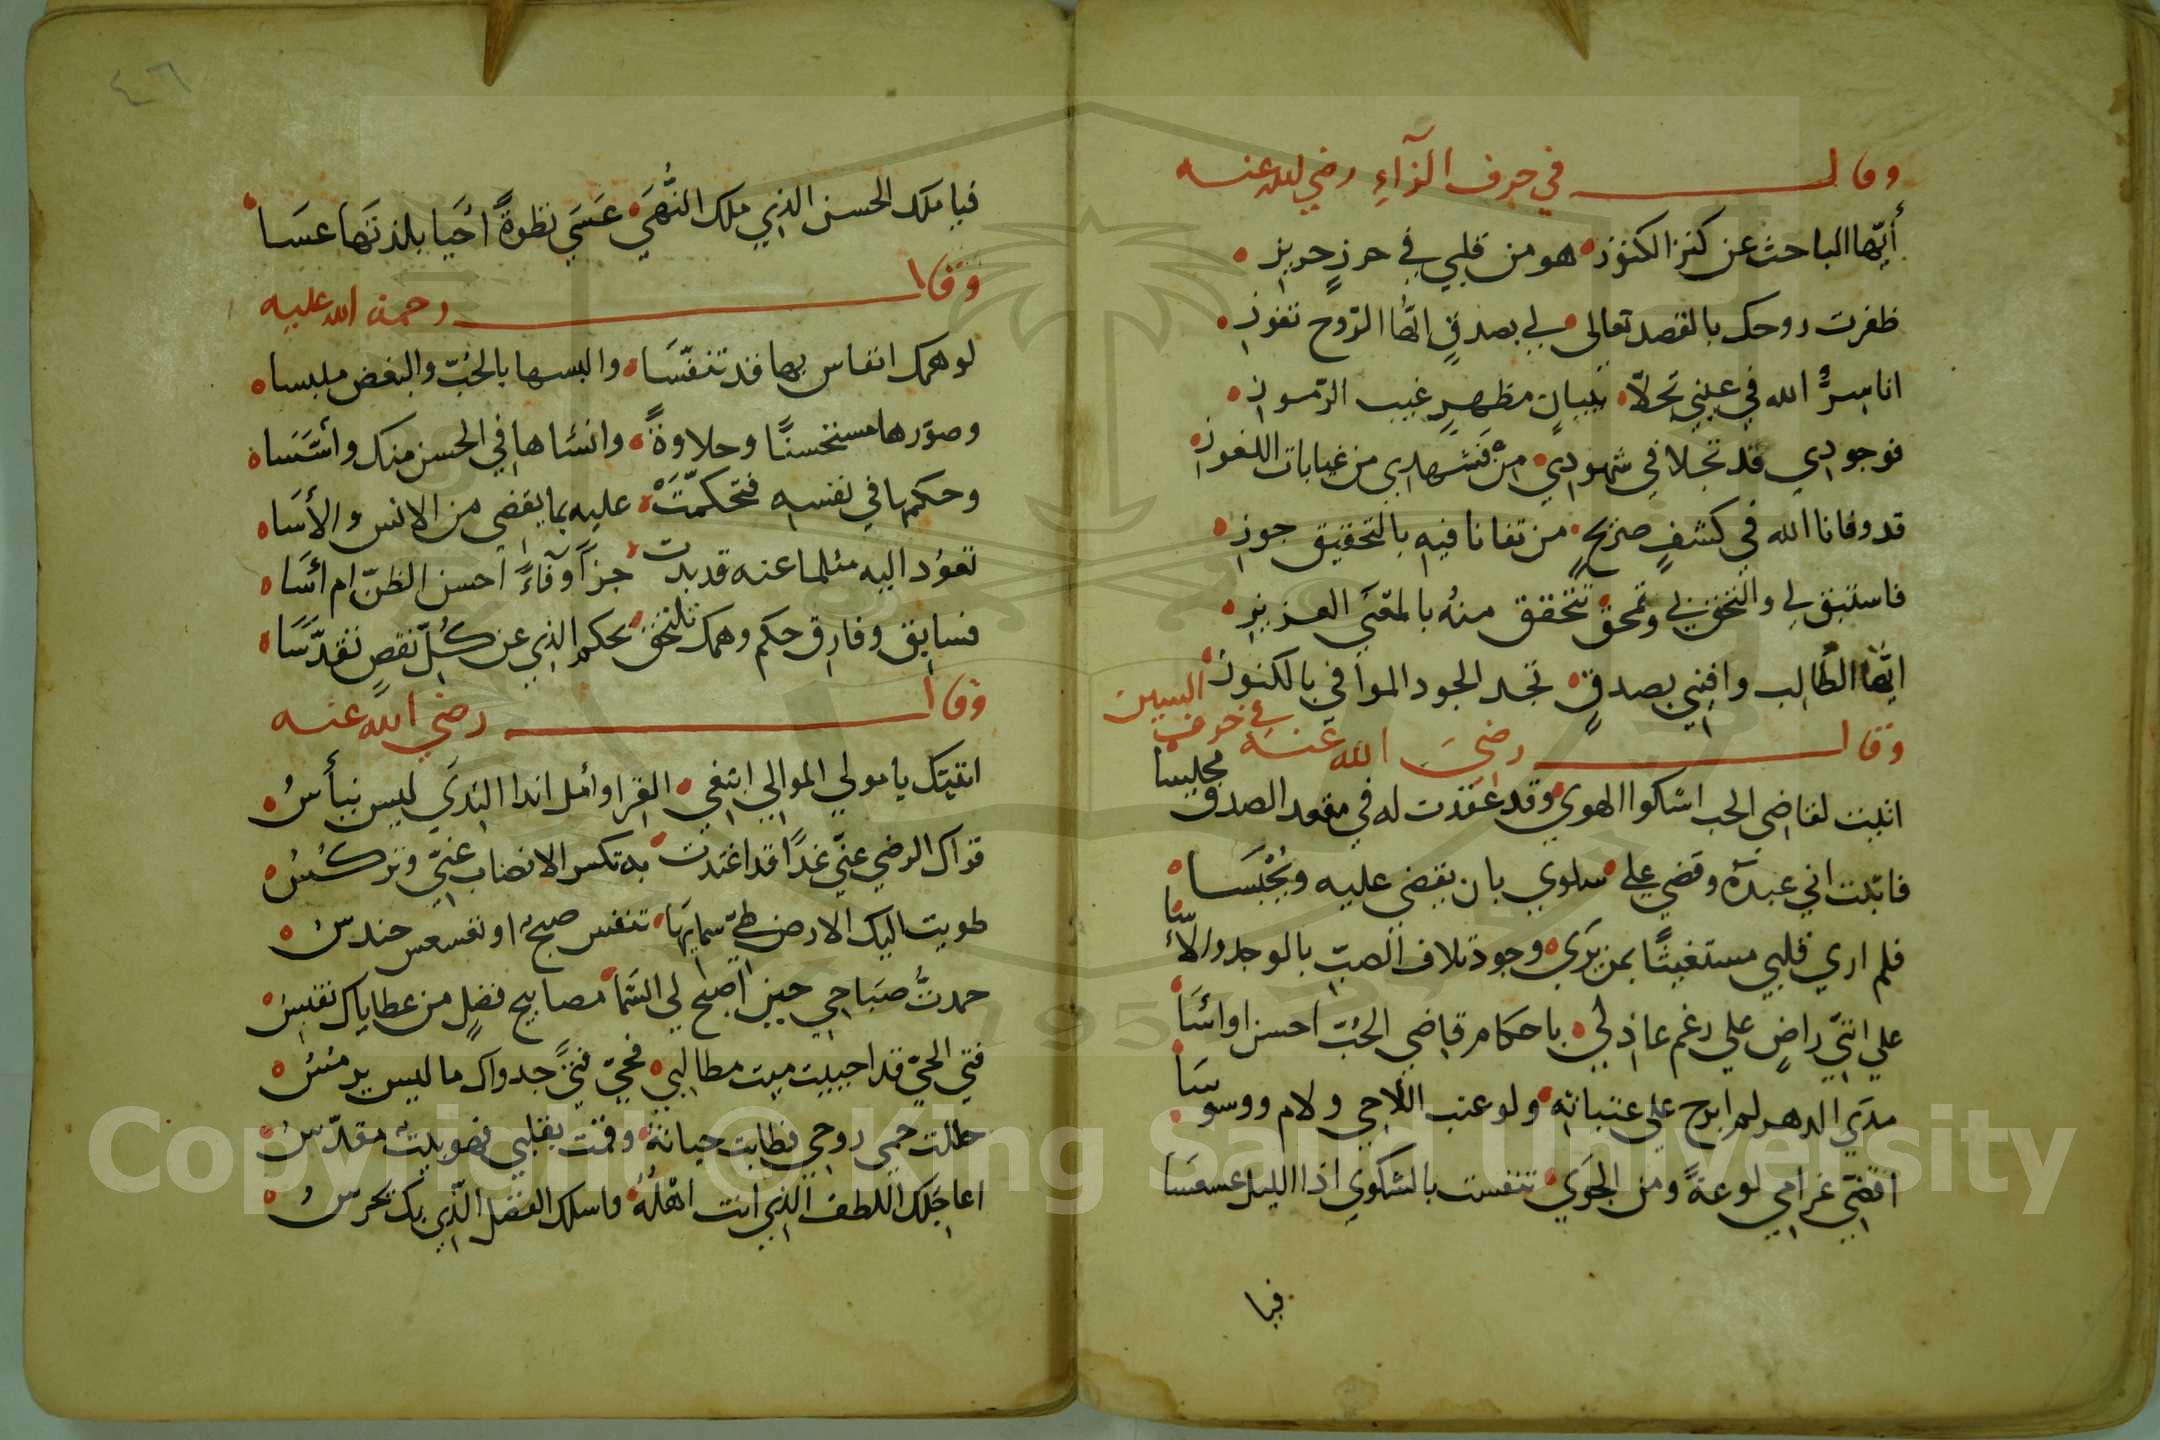 وقال في حرف الزآء رضي الله عنه
أيّها الباحث عن كنز الكنوز هو من قلبي في حرزٍ حريز
ظفرت روحك بالقصد تعالى لي بصدقٍ ايّها الرّوح تفوز
انا سرُّ الله في عيني تجلّا ببيانٍ مظهرٍ غيب الرّموز
فوجودي قد تجلا في شهودي من فتشهدي من غيابات اللغوز
قد وفانا الله في كشفٍ صريحٍ من تفانا فيه بالتحقيق جوز
فاستبق لي والتحق بي وتمحق تتحقق منه بالمعنى العزيز
ايّها الطّالب وافيني بصدقٍ تجد الجود الموافي بالكنوز
وقال رضيَ الله عنه في حرف السين
اتيت لقاضي الحب اشكوا الهوي وقد اعتقدت له في مقعد الصدق مجلسا
فاثبت اني عبده وقضي علي سلوي بان يقضى عليه ويُحْبَسا
فلم اري قلبي مستغيثًا بمن يَرَي وجود تلاف الصبّ بالوجد والاسَا
علي انّني راضٍ علي رغم عاذلي باحكام قاضي الحُبّ احسن او اسَا
مدَي الدهر لم ابرح علي عتباته ولو عتب اللّاحي ولام ووسوسَا
افضي غرامي لوعةً ومن الجَوَي تنفست بالشكوي اذا الليل عسعسَا
فيا
٤٦
فيا ملك الحسن الذي ملك النُّهَي عَسَي نظرةً احَيا بلذتهَا عسَا
وقال رحمة الله عليه
لوهمك انفاس بها قد تنفّسَا والبسها بالحُبّ والبغض ملبسا
وصوّرها مستحسنًا وحلاوةً وانشاها في الحسن منك وأسّسَا
وحكمها في نفسه فتحكمّتَ عليه بما يقضي من الانس والأسَا
تعوُد اليه مثلما عنه قد بدت جزآ وفآءً احسن الظنّ ام اسَا
فسابق وفارق حكم وهمك تلتحق بحكم الذي عن كُلّ نقصٍ تقدّسَا
وقال رضي الله عنه
اتيتك يا مولي الموالي ابتغي القرا وأمل اندا الندَي ليس ييأسُ
قواك الرضي عنّي غدًا قد اغتدت به تكس الانصاب عنّي وتركسُ
طويت اليك الارض طيّ سمايهَا تنفس صبحٌ او تعسعس حندسُ
حمدتُ صبَاحي حين اصبح لي الشما مصابيح فضلٍ من عطاياك تقبسُ
فتي الحيّ قد احييت ميت مطالبي فحيّ فتيً جدواك ما ليس يرمسُ
حللت حمي روحي فطابت حياتهُ وقمت بقلبي فهو بيتٌ مقدّسُ
اعاجلك اللطف الذي انت اهلُهُ واسلك الفضل الّذي بك يحرسُ